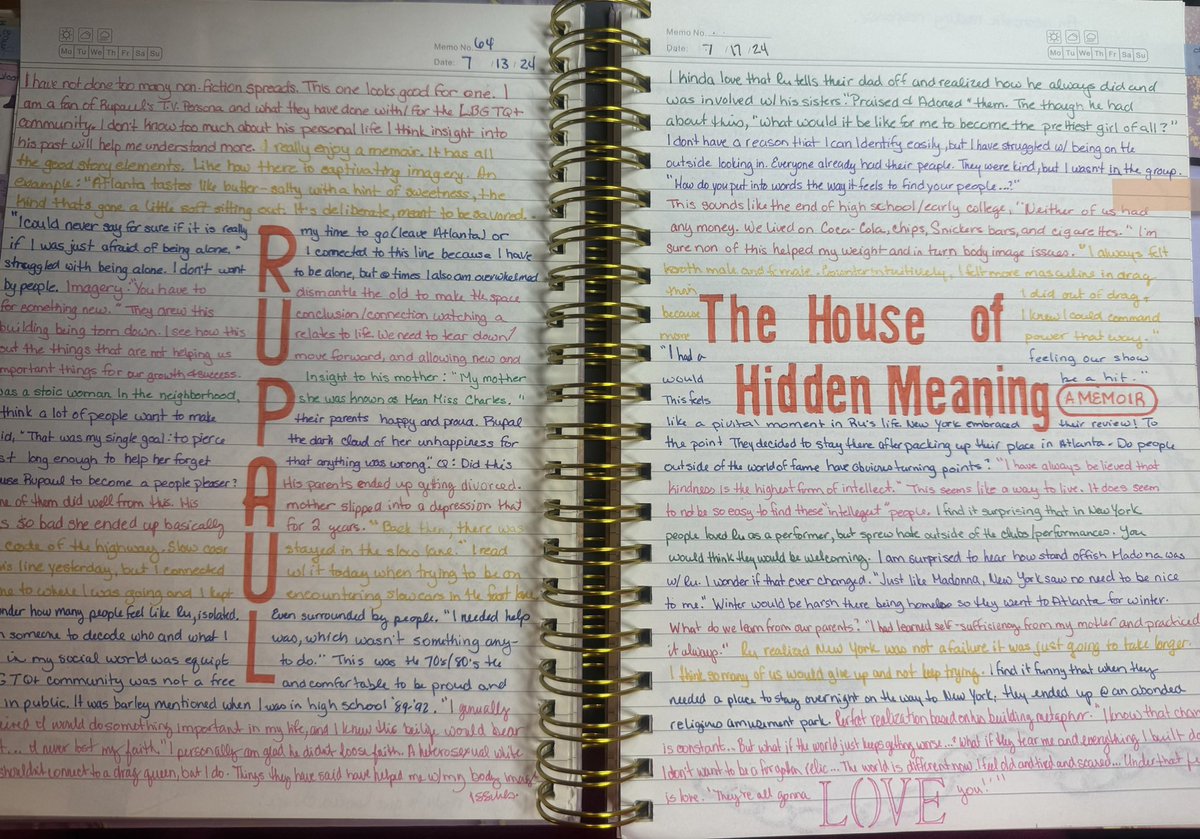 Mo Tu We Th Fr Sa Su
Memo No. 64
Date: 7 / 13 / 24
I have not done too many non-fiction spreads. This one looks good for one. I
am a fan of Rupaul's T.V. Persona and what they have done with/for the LBGTQ+
community. I don't know too much about his personal life I think insight into
his past will help me understand more. I really enjoy a memoir. It has all
the good story elements. Like how there is captivating imagery. An
example: "Atlanta tastes like butter-salty with a hint of sweetness, the
kind thats gone a little soft sitting out. It's deliberate, meant to be savored.
"I could never say for sure if it is really my time to go (leave Atlanta) or
if I was just afraid of being alone." I connected to this line because I have
struggled with being alone. I don't want to be alone, but @ times I also am overwhelmed
by people. Imagery: "You have to dismantle the old to make the space
for something new." They drew this conclusion/connection watching a
building being torn down. I see how this relates to life. We need to tear down/
out the things that are not helping us move forward, and allowing new and
mportant things for our growth & success. Insight to his mother: "My mother
was a stoic woman. In the neighborhood, she was known as Mean Miss Charles."
think a lot of people want to make their parents happy and proud. Rupal
id, "That was my single goal: to pierce the dark cloud of her unhappiness for
st long enough to help her forget that anything was wrong." Q: Did this
use Rupaul to become a people pleaser? His parents ended up getting divorced.
ne of them did well from this. His mother slipped into a depression that
s so bad she ended up basically for 2 years. "Back then, there was
code of the highway. Slow cars stayed in the slow lane." I read
his line yesterday, but I connected w/ it today when trying to be on
me to where I was going and I kept encountering slow cars in the fast lane
onder how many people feel like Ru, isolated. Even surrounded by people. "I needed help
m someone to decode who and what I was, which wasn't something any-
in my social world was equipt to do." This was the 70's/80's the
GTQ+ community was not a free and comfortable to be proud and
in public. It was barley mentioned when I was in high school '89-'92. "I genually
ieved I would do something important in my life, and I knew this belief would bear
t... I never lost my faith." I personally am glad he didn't loose faith. A heterosexual white
shouldn't connect to a drag queen, but I do. Things they have said have helped me w/ my body image
issues.
RUPAUL
Memo No.
Date: 7 / 17 / 24
Mo Tu We Th Fr Sa Su
I kinda love that Ru tells their dad off and realized how he always did and
was involved w/ his sisters. "Praised & Adored" them. The though he had
about this, "what would it be like for me to become the prettiest girl of all?"
I dont have a reason that I can Identify easily, but I have struggled w/ being on the
outside looking in. Everyone already had their people. They were kind, but I wasnt in the group.
"How do you put into words the way it feels to find your people...?"
This sounds like the end of high school/early college, "Neither of us had
any money. We lived on Coca-Cola, chips, Snickers bars, and cigarettes." I'm
sure non of this helped my weight and in turn body image issues. "I always felt
both male and female. Counterintuitively, I felt more masculine in drag
than I did out of drag,
because I knew I could command
more power that way."
"I had a feeling our show
would be a hit."
This feels
The House of
Hidden Meaning
A MEMOIR
like a pivital moment in Ru's life. New York embraced their review! To
the point They decided to stay there after packing up their place in Atlanta. Do people
outside of the world of fame have obvious turning points? "I have always believed that
kindness is the highest form of intellect." This seems like a way to live. It does seem
to not be so easy to find these "intellegent" people. I find it surprising that in New York
people loved Ru as a performer, but sprew hate outside of the clubs/performances. You
would think they would be welcoming. I am surprised to hear how stand offish Madona was
w/ Ru. I wonder if that ever changed. "Just like Madonna, New York saw no need to be nice
to me." Winter would be harsh there being homeless so they went to Atlanta for winter.
What do we learn from our parents? "I had learned self-suffisiency from my mother and practiced
it always." Ru realized New York was not a failure it was just going to take longer.
I think so many of us would give up and not keep trying. I find it funny that when they
needed a place to stay overnight on the way to New York, they ended up @ an abonded
religious amusement park. Perfect realization based on his building metaphor. "I know that chan
is constant... But what if the world just keeps getting worse...? What if they tear me and everything I built do
I don't want to be a forgotten relic... The world is different now. I feel old and tired and scared... Under that fe
is love. 'They're all gonna LOVE you!'"